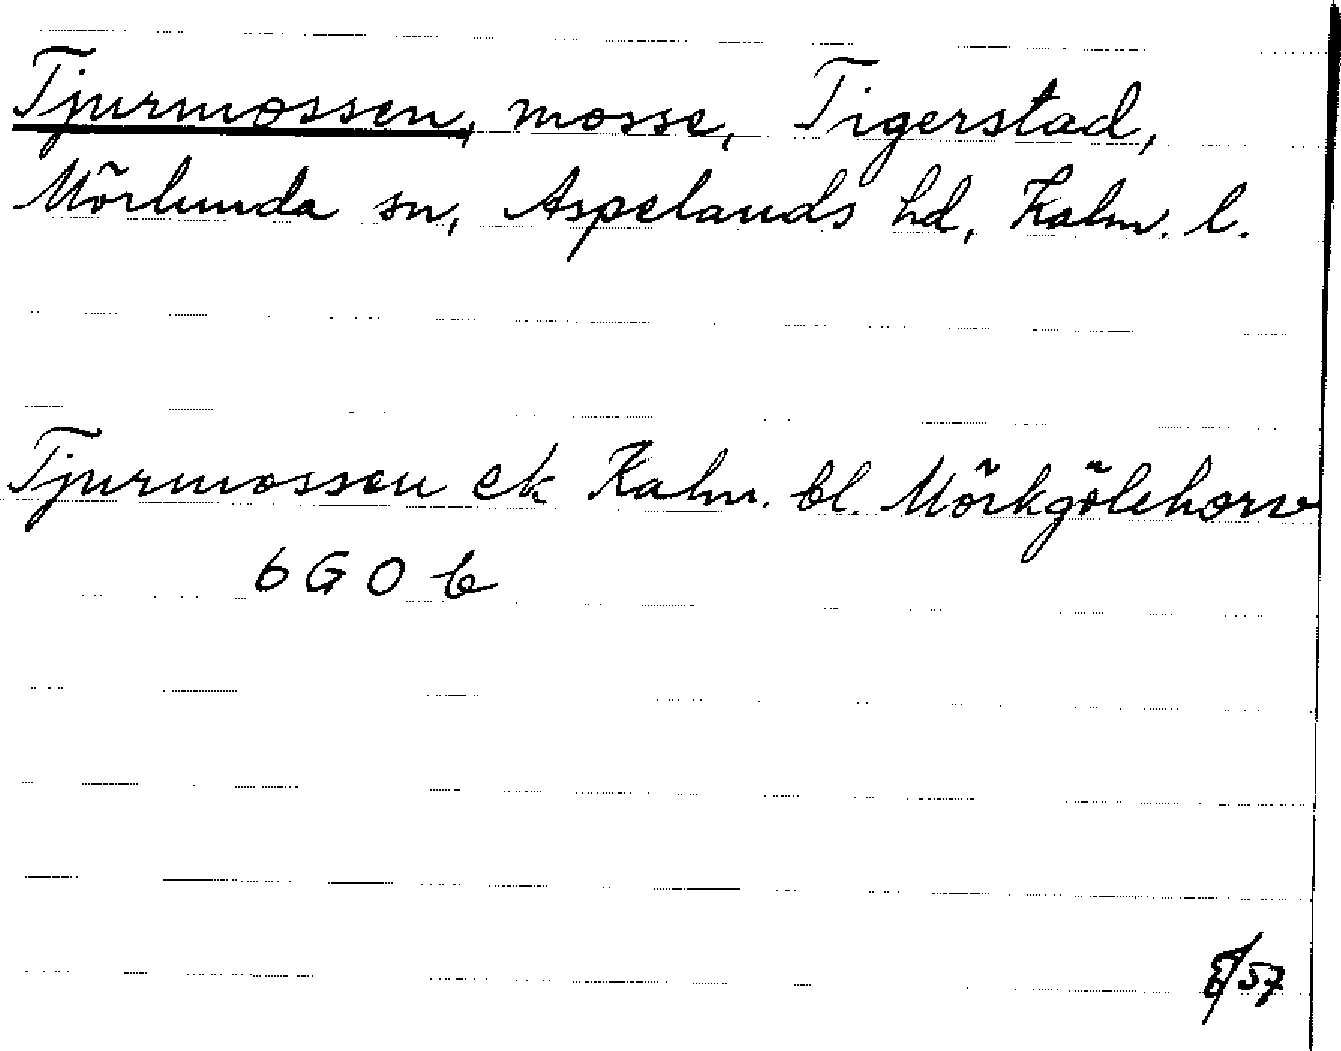 Tjurmossen, mosse, Tigerstad,
Mörlunda sn, Aspelands hd, Kalm. l.
Tjurmossen ek Kalm. bl. Mörkgölehorv
6 G 0 b
/57